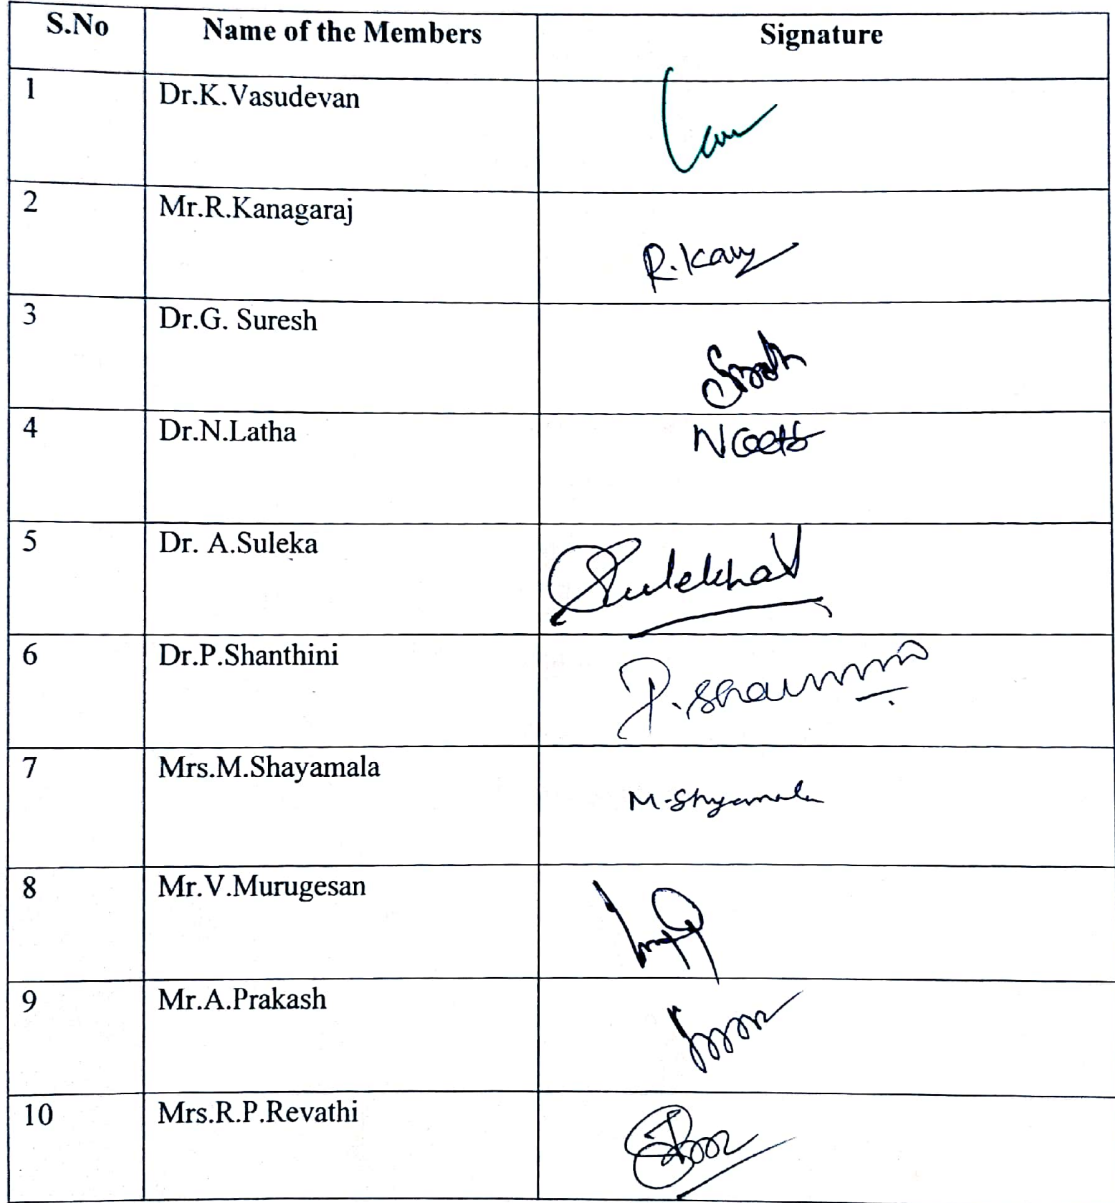 S.No Name of the Members Signature
1 Dr.K.Vasudevan
2 Mr.R.Kanagaraj
R.Kan
3 Dr.G. Suresh
4 Dr.N.Latha
5 Dr. A.Suleka
Sulekha
6 Dr.P.Shanthini
7 Mrs.M.Shayamala
M-Shyamala
8 Mr.V.Murugesan
9 Mr.A.Prakash
10 Mrs.R.P.Revathi